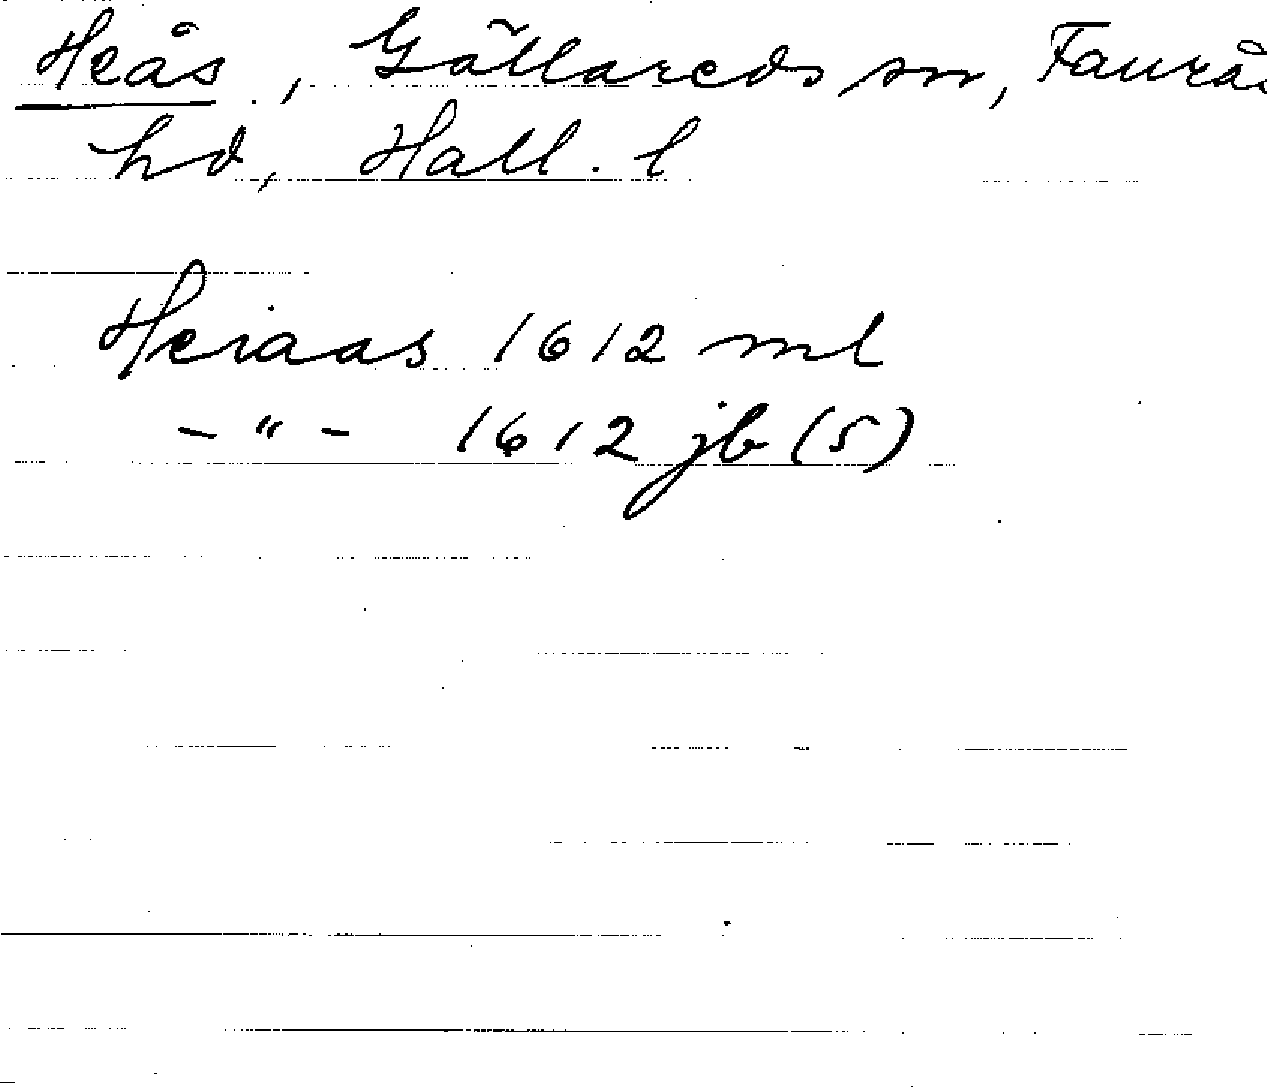 Heås, Gällareds sn, Faurås
hd, Hall. l
Heiaas 1612 ml
-"- 1612 jb (5)